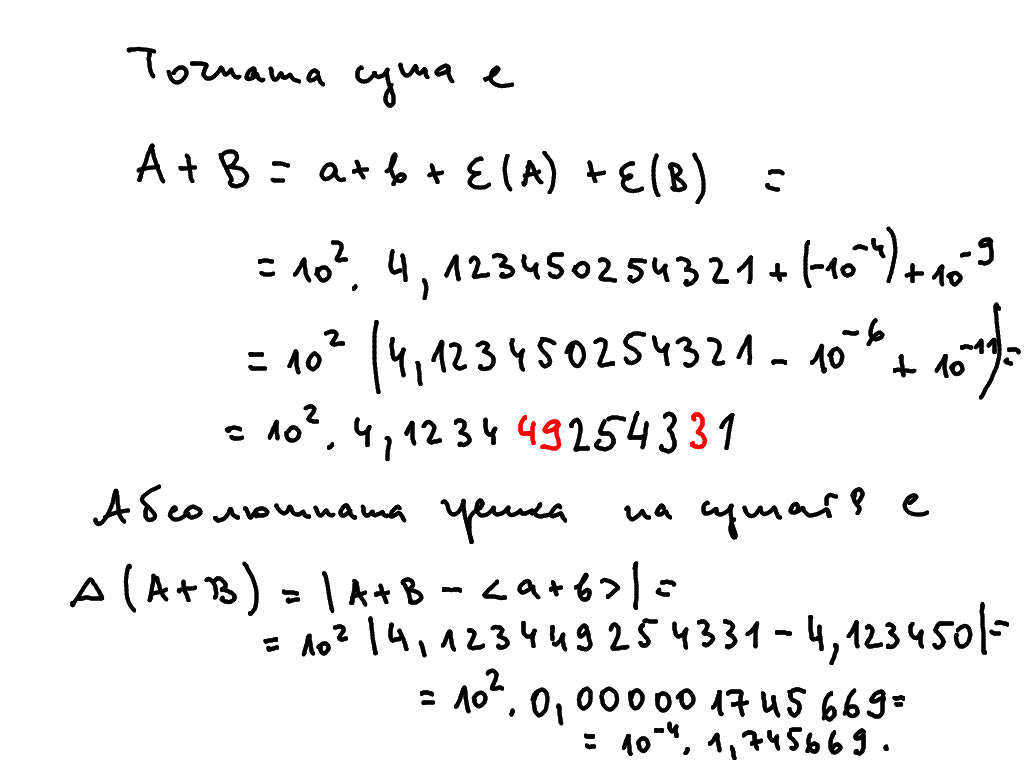 Точната сума е
A+B = a+b + ε(A) + ε(B) =
= 10² . 4,123450254321 + (-10⁻⁴) + 10⁻⁹
= 10² (4,123450254321 - 10⁻⁶ + 10⁻¹¹) =
= 10² . 4,123449254331
Абсолютната грешка на сумата е
Δ(A+B) = |A+B - <a+b>| =
= 10² |4,123449254331 - 4,123450| =
= 10² . 0,000001745669 =
= 10⁻⁴ . 1,745669.